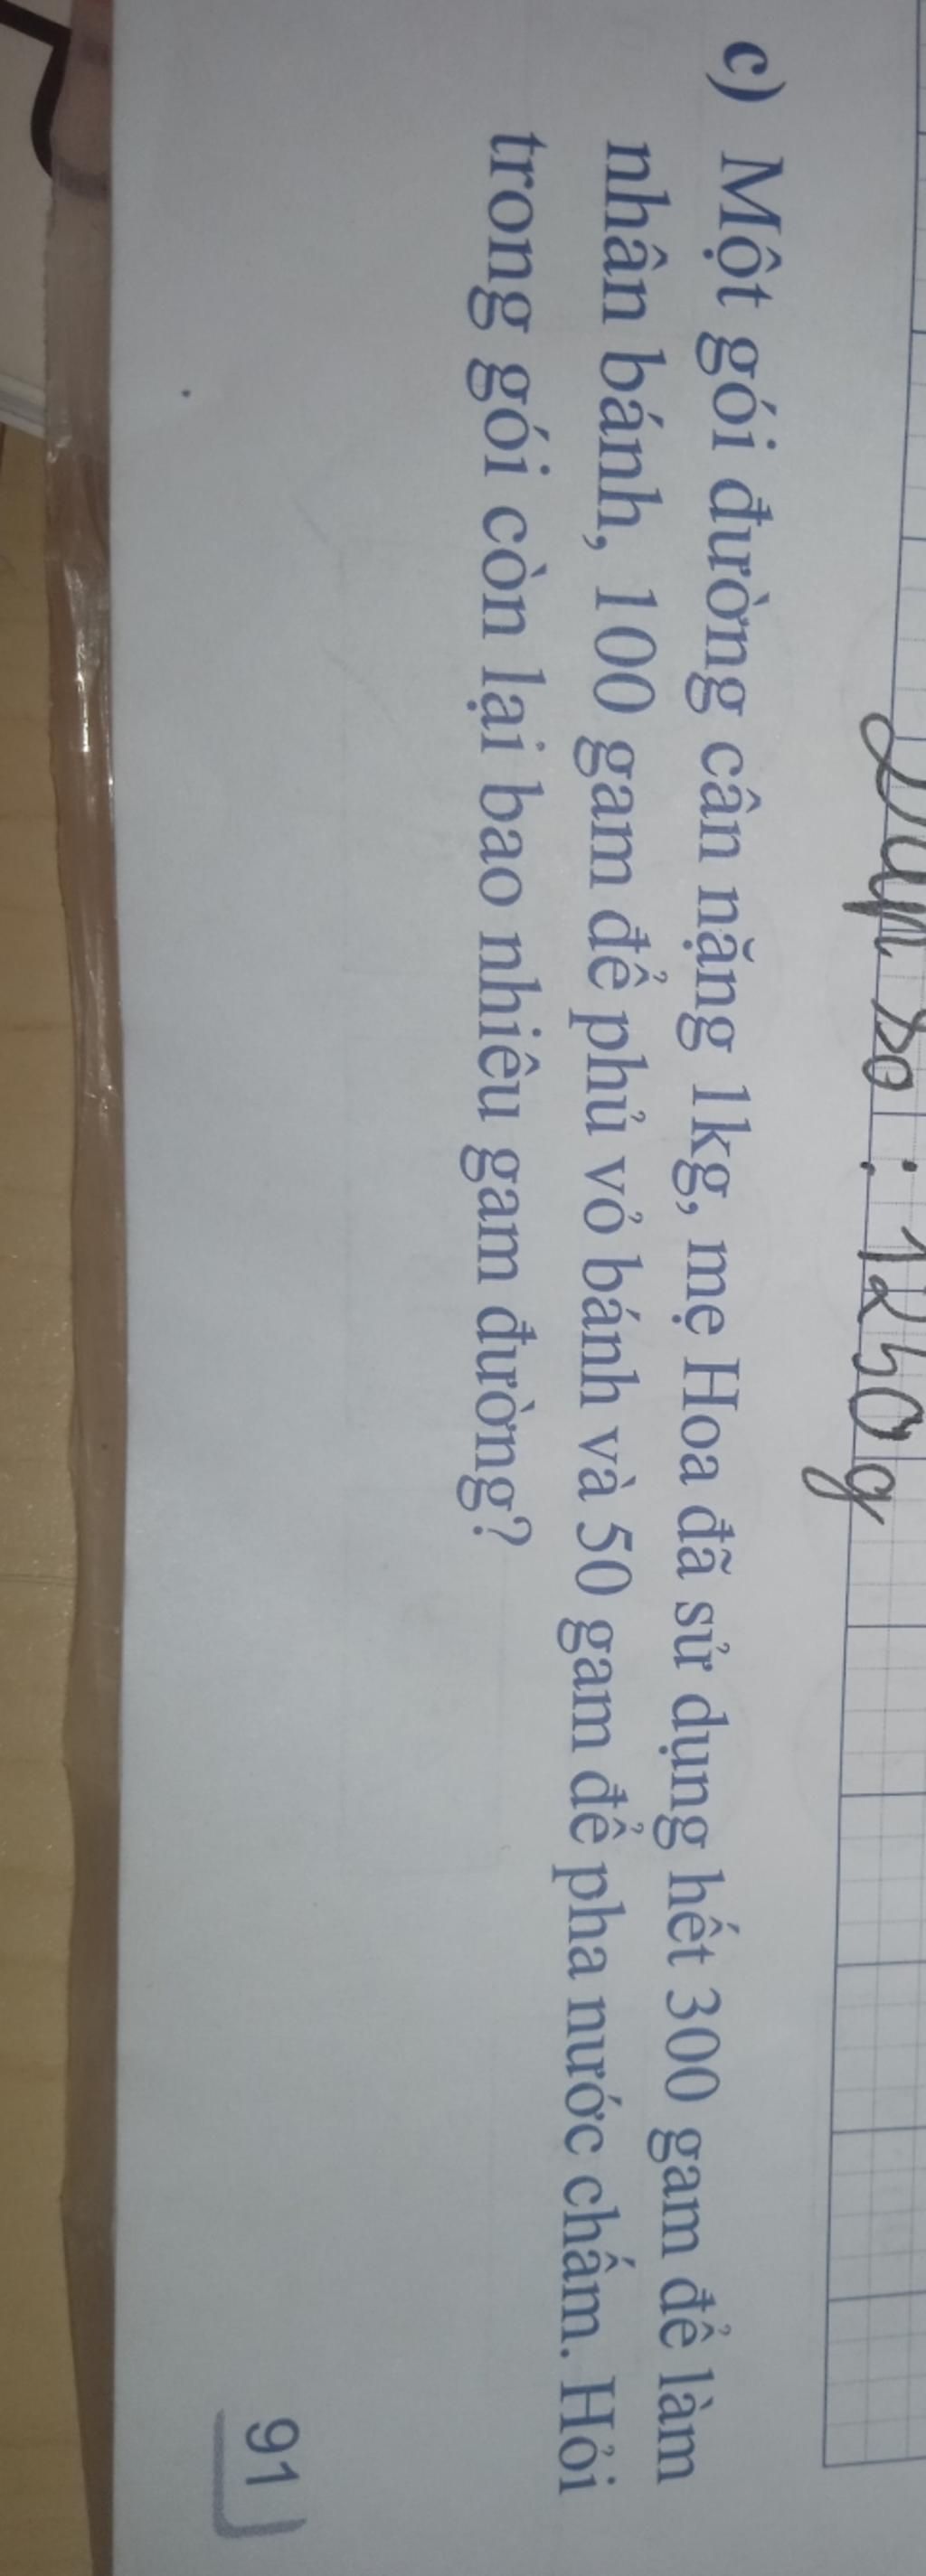 Đáp số : 1250g
c) Một gói đường cân nặng 1kg, mẹ Hoa đã sử dụng hết 300 gam để làm
nhân bánh, 100 gam để phủ vỏ bánh và 50 gam để pha nước chấm. Hỏi
trong gói còn lại bao nhiêu gam đường?
91